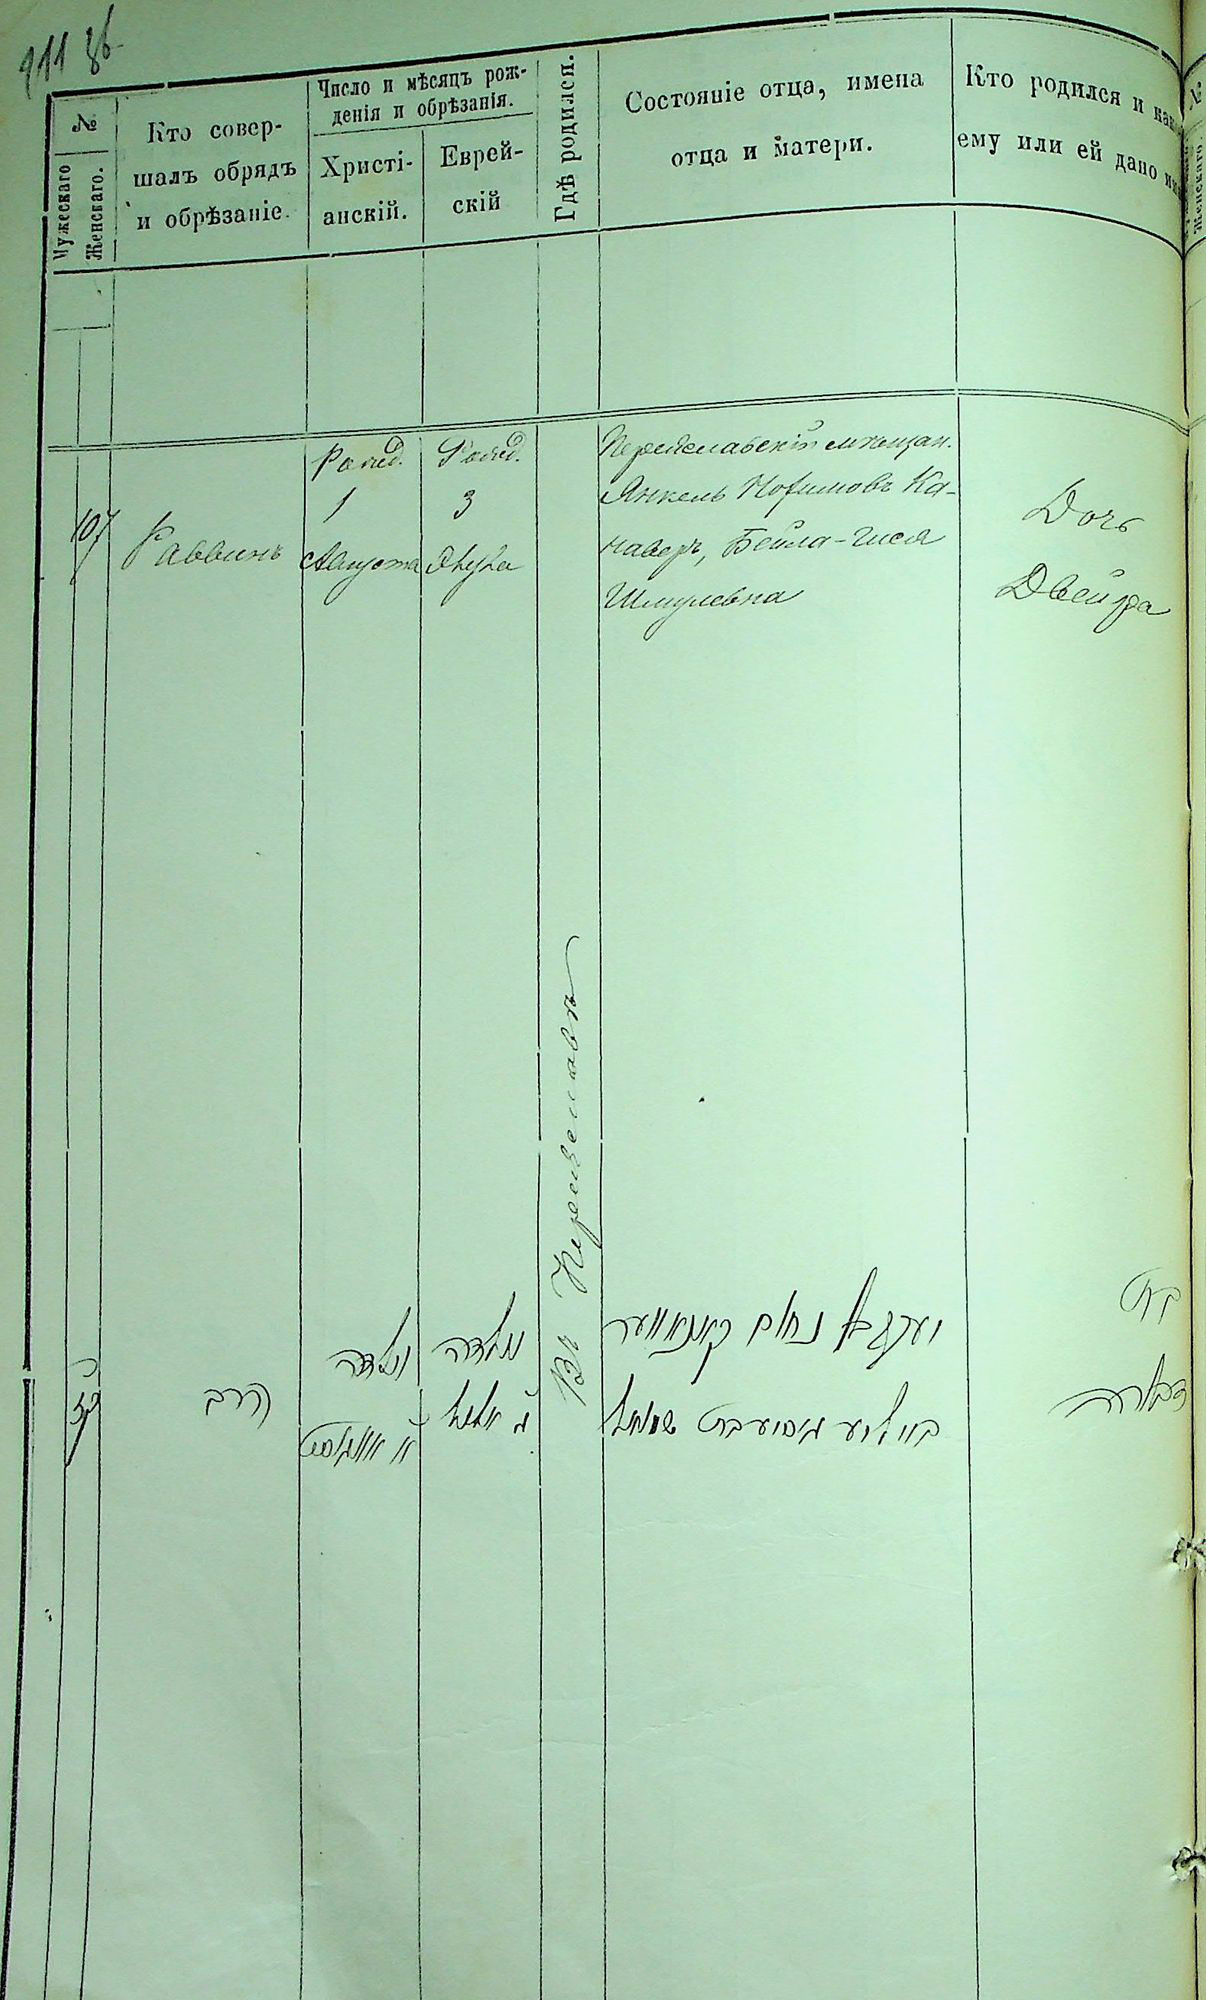 №
Мужескаго
Женскаго.
Кто совер-
шалъ обрядъ
и обрѣзаніе.
Число и мѣсяцъ рож-
денія и обрѣзанія.
Христі-
анскій.
Еврей-
скій
Гдѣ родился.
Состояніе отца, имена
отца и матери.
Кто родился и как
ему или ей дано им
107
Раввинъ
Рожд.
1
Августа
Рожд.
3
Въ Переяславѣ
Переяславскій мѣщан.
Янкель Нохимовъ Ка-
наверъ, Бейла-Гися
Шмулевна
Дочь
Двейра
הרב
נולדה
א אויגוסט
נולדה
ג אלול
יעקב נחום קאנאווער
ביילע גיסע בת שמואל
בת
דבורה